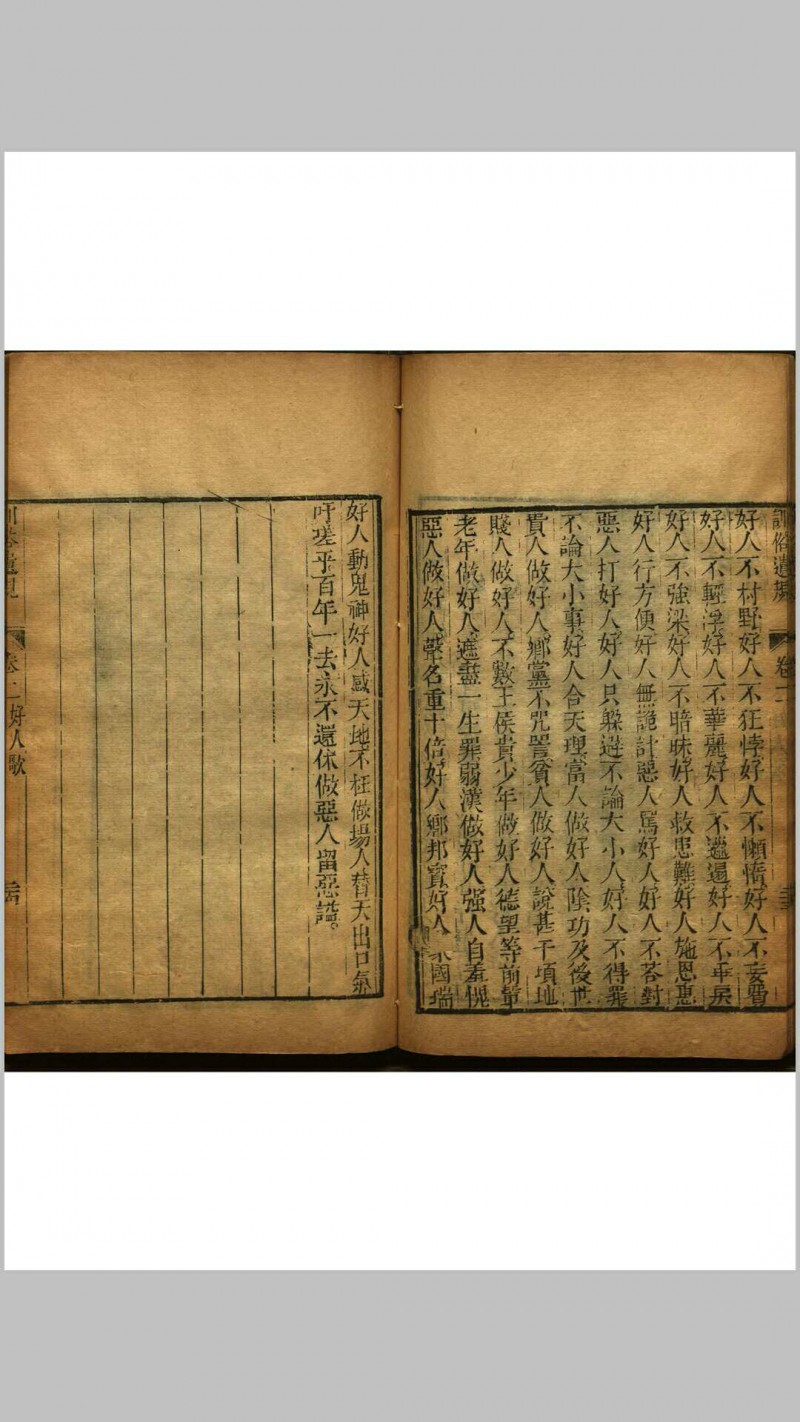 訓俗遺規 卷二
好人不村野好人不狂悖好人不懶惰好人不妄費
好人不輕浮好人不華麗好人不邋遢好人不乖戾
好人不強梁好人不暗昧好人救患難好人施恩惠
好人行方便好人無詭計惡人罵好人好人不荅對
惡人打好人好人只躱避不論大小人好人不得罪
不論大小事好人合天理富人做好人陰功及後世
貴人做好人鄉黨不咒詈貧人做好人說甚千頃地
賤人做好人不數王侯貴少年做好人德望等前輩
老年做好人遮盡一生罪弱漢做好人强人自羞愧
惡人做好人聲名重十倍好人鄉邦寳好人家國瑞
好人動鬼神好人感天地不枉做塲人替天出口氣
吁嗟乎百年一去永不還休做惡人留惡
卷二好人歌